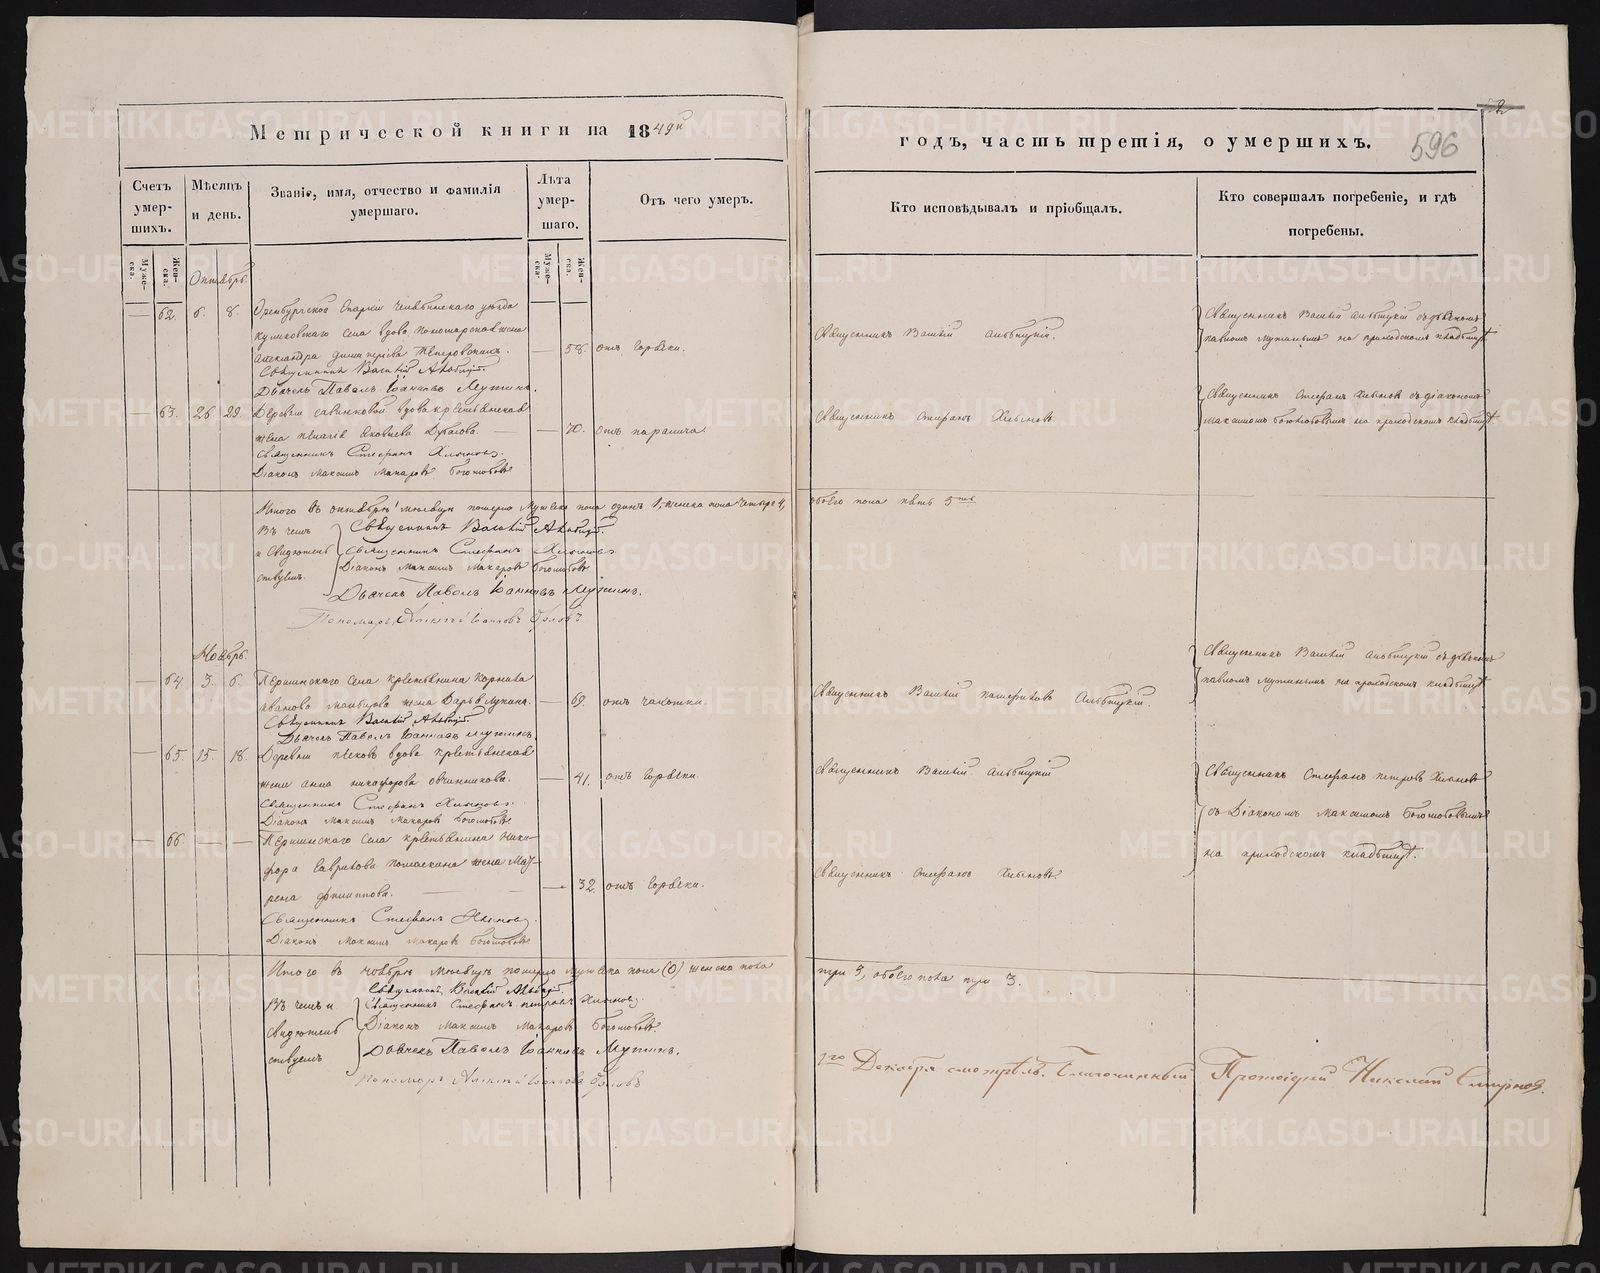 Метрической книги на 1849й
годъ, часть третія, о умершихъ.
596
Счетъ умер-шихъ.
Мѣсяцъ и день.
Званіе, имя, отчество и фамилія умершаго.
Лѣта умер-шаго.
Отъ чего умеръ.
Кто исповѣдывалъ и пріобщалъ.
Кто совершалъ погребеніе, и гдѣ погребены.
Муже-ска.
Жен-ска.
Муже-ска.
Жен-ска.
Октябрь.
62. 6. 8. Оренбургской Епархіи Челябинскаго уѣзда
села вдова пономарская жена
Александра Димитріева Петровскихъ. — 58. отъ горячки.
Священникъ Василій
Дьячекъ Павелъ Іоанновъ Мутинъ.
Священникъ Василій
Священникъ Василій съ дьячкомъ
Павломъ Мутинымъ на приходскомъ кладбищѣ
— 63. 26 29. Деревни Савинковой вдова крестьянская
жена Пелагія Яковлева — 70. отъ паралича.
Священникъ Стефанъ Хлыновъ.
Діаконъ Максимъ Макаровъ Боголюбовъ
Священникъ Стефанъ Хлыновъ.
Священникъ Стефанъ Хлыновъ съ діакономъ
Максимомъ Боголюбовымъ на приходскомъ кладбищѣ
Итого въ октябрѣ мѣсяцѣ померло мужеска пола одинъ 1, женска пола четыре 4,
обоего пола пять 5ть
Въ чемъ и свидѣтель-ствуемъ.
Священникъ Василій
Священникъ Стефанъ Хлыновъ
Діаконъ Максимъ Макаровъ Боголюбовъ
Дьячекъ Павелъ Іоанновъ Мутинъ.
Пономарь Алексѣй Іоанновъ Орловъ
Ноябрь.
— 64 3. 6. Першинскаго села крестьянина Корнила
Иванова жена Дарья Лукина. — 69. отъ чахотки.
Священникъ Василій
Дьячекъ Павелъ Іоанновъ Мутинъ.
Священникъ Василій
Священникъ Василій съ дьячкомъ
Павломъ Мутинымъ на приходскомъ кладбищѣ
— 65 15. 18. Деревни вдова крестьянская
жена Анна Никифорова Овчинникова. — 41. отъ горячки.
Священникъ Стефанъ Хлыновъ.
Діаконъ Максимъ Макаровъ Боголюбовъ
Священникъ Василій
Священникъ Стефанъ Петровъ Хлыновъ
съ Діакономъ Максимомъ Боголюбовымъ
на приходскомъ кладбищѣ.
— 66. — — Першинскаго села крестьянина Ники-
фора Гаврилова жена Мат-
рена Филиппова. — 32. отъ горячки.
Священникъ Стефанъ Хлыновъ.
Діаконъ Максимъ Макаровъ Боголюбовъ
Священникъ Стефанъ Хлыновъ.
Итого въ ноябрѣ мѣсяцѣ померло мужеска пола (0) женска пола
три 3, обоего пола три 3.
Въ чемъ и свидѣтель-ствуемъ
Священникъ Василій
Священникъ Стефанъ Петровъ Хлыновъ.
Діаконъ Максимъ Макаровъ Боголюбовъ.
Дьячекъ Павелъ Іоанновъ Мутинъ.
Пономарь Алексѣй Іоанновъ Орловъ
Декабря смотрѣлъ. Благочинный Протоіерей Николай Смирновъ.
METRIKI.GASO-URAL.RU